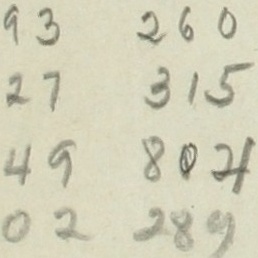 93 260
27 315
49 804
02 289